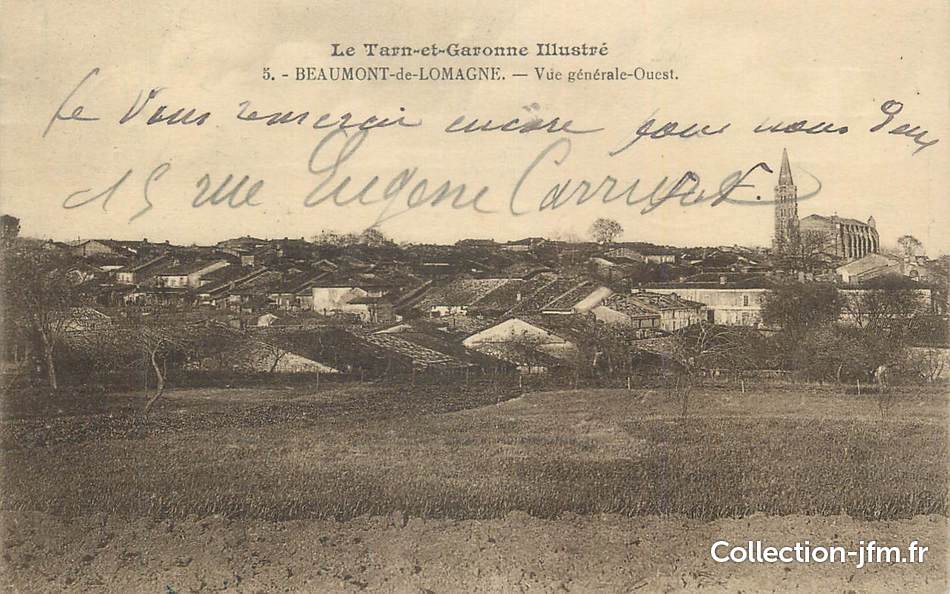 Le Tarn-et-Garonne Illustré
5. - BEAUMONT-de-LOMAGNE. — Vue générale-Ouest.
Je Vous remercie encore pour nous deux
15 rue Eugène
Collection-jfm.fr